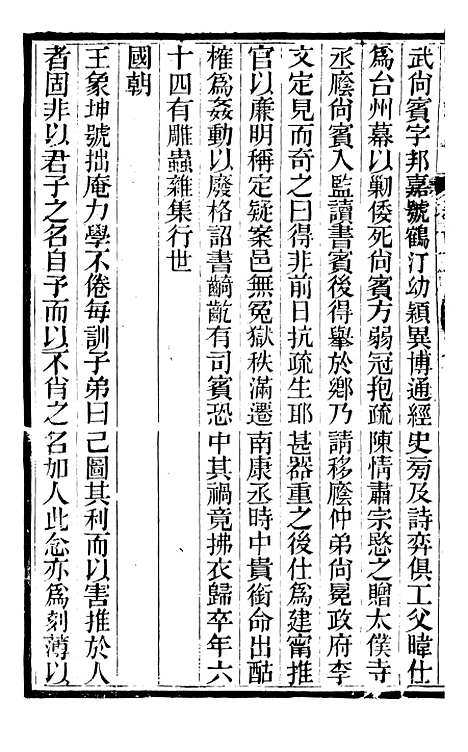 武尙賓字邦嘉號鶴汀幼穎異博通經史旁及詩弈俱工父暐仕
爲台州幕以剿倭死尙賓方弱冠抱疏陳情肅宗愍之贈太僕寺
丞廕尙賓入監讀書賓後得舉於鄉乃請移廕仲弟尙冕政府李
文定見而奇之曰得非前日抗疏生耶甚器重之後仕爲建甯推
官以廉明稱定疑案邑無冤獄秩滿遷南康丞時中貴銜命出酤
榷爲姦動以廢格詔書齮齕有司賓恐中其禍竟拂衣歸卒年六
十四有雕蟲雜集行世
國朝
王象坤號拙庵力學不倦每訓子弟曰己圖其利而以害推於人
者固非以君子之名自予而以不肖之名加人此念亦爲刻薄以